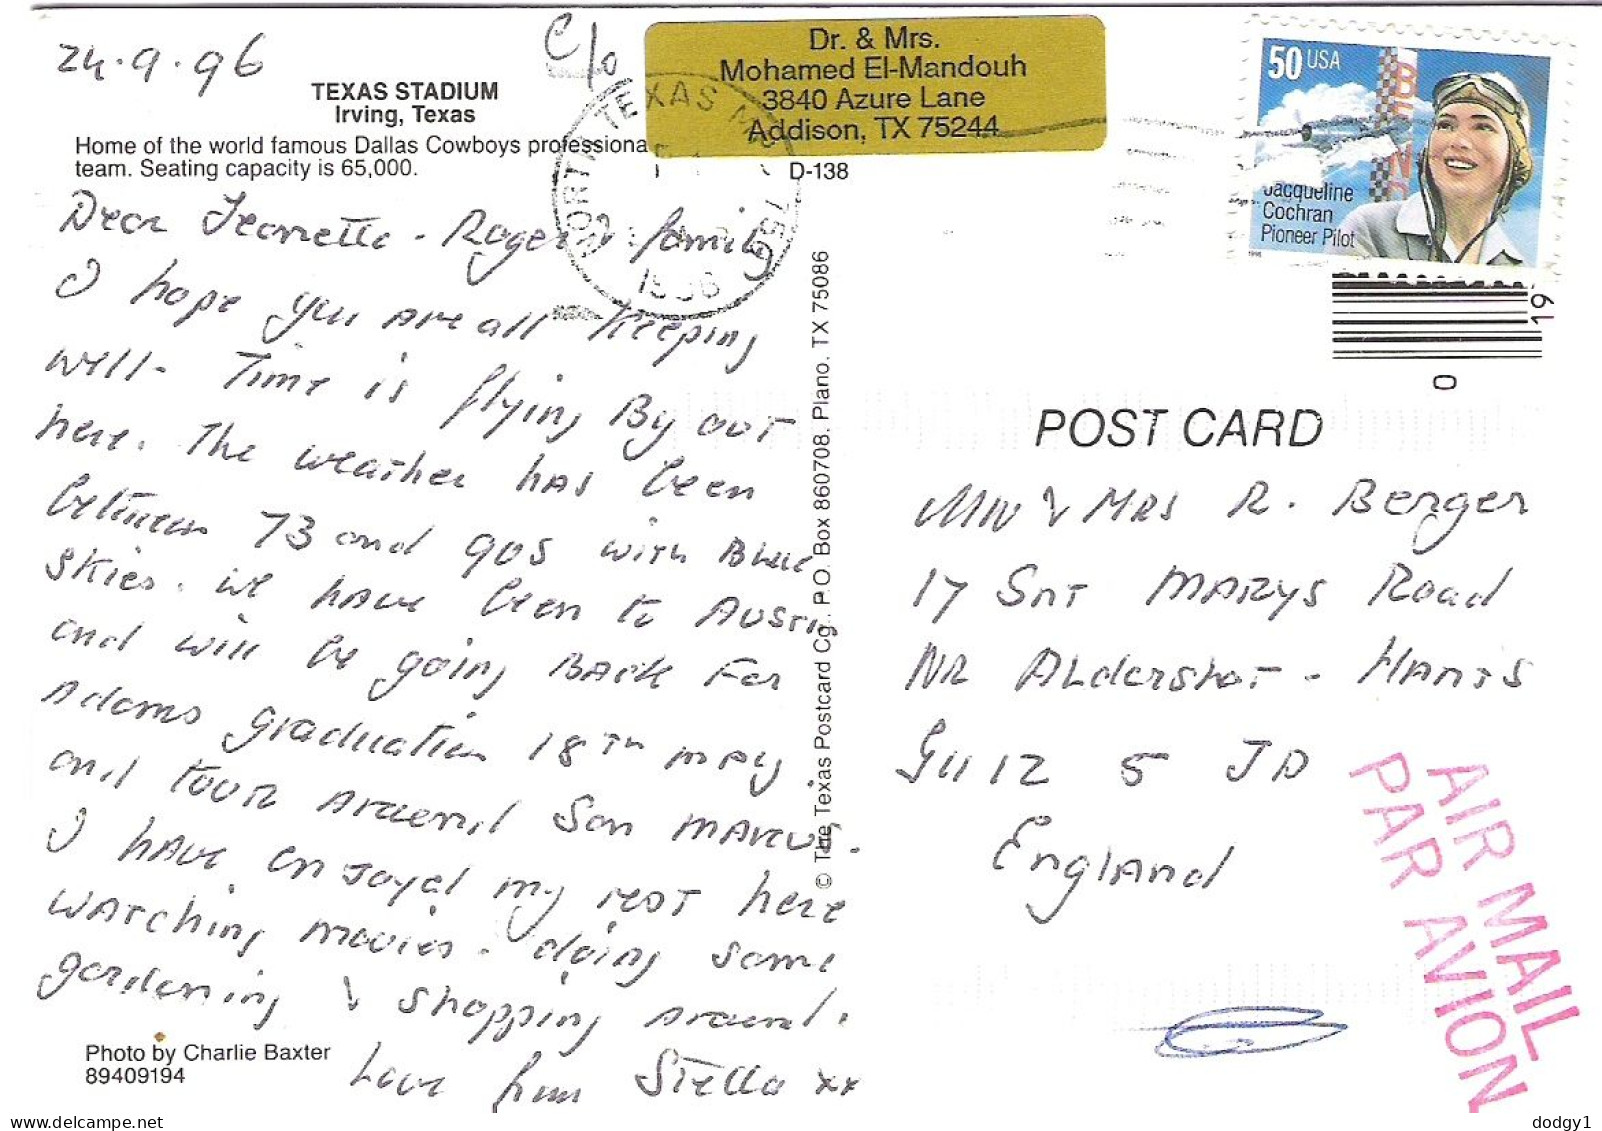 24.9.96
C/o
Dr. & Mrs.
Mohamed El-Mandouh
3840 Azure Lane
Addison, TX 75244
TEXAS STADIUM
Irving, Texas
Home of the world famous Dallas Cowboys professiona
team. Seating capacity is 65,000.
D-138
Dear Jeanette - Roger & family
I hope you are all keeping
well - Time is flying By out
here. The weather has been
between 73 and 90s with Blue
skies. we have been to Austin
and will be going BAck For
Adams graduation 18Th MAy
and tour Around San MARCUS.
I HAVE enjoyed my rest here
WATching movies - doing some
gardening & shopping Around.
Love from Stella xx
Photo by Charlie Baxter
89409194
© The Texas Postcard Co., P.O. Box 860708, Plano, TX 75086
NORTH TEXAS
1996
50 USA
Jacqueline
Cochran
Pioneer Pilot
1996
19
0
POST CARD
Mr & MRS R. Berger
17 SnT MARYS Road
NR ALdershoT - HANTS
GU12 5 JD
England
AIR MAIL
PAR AVION
dodgy1